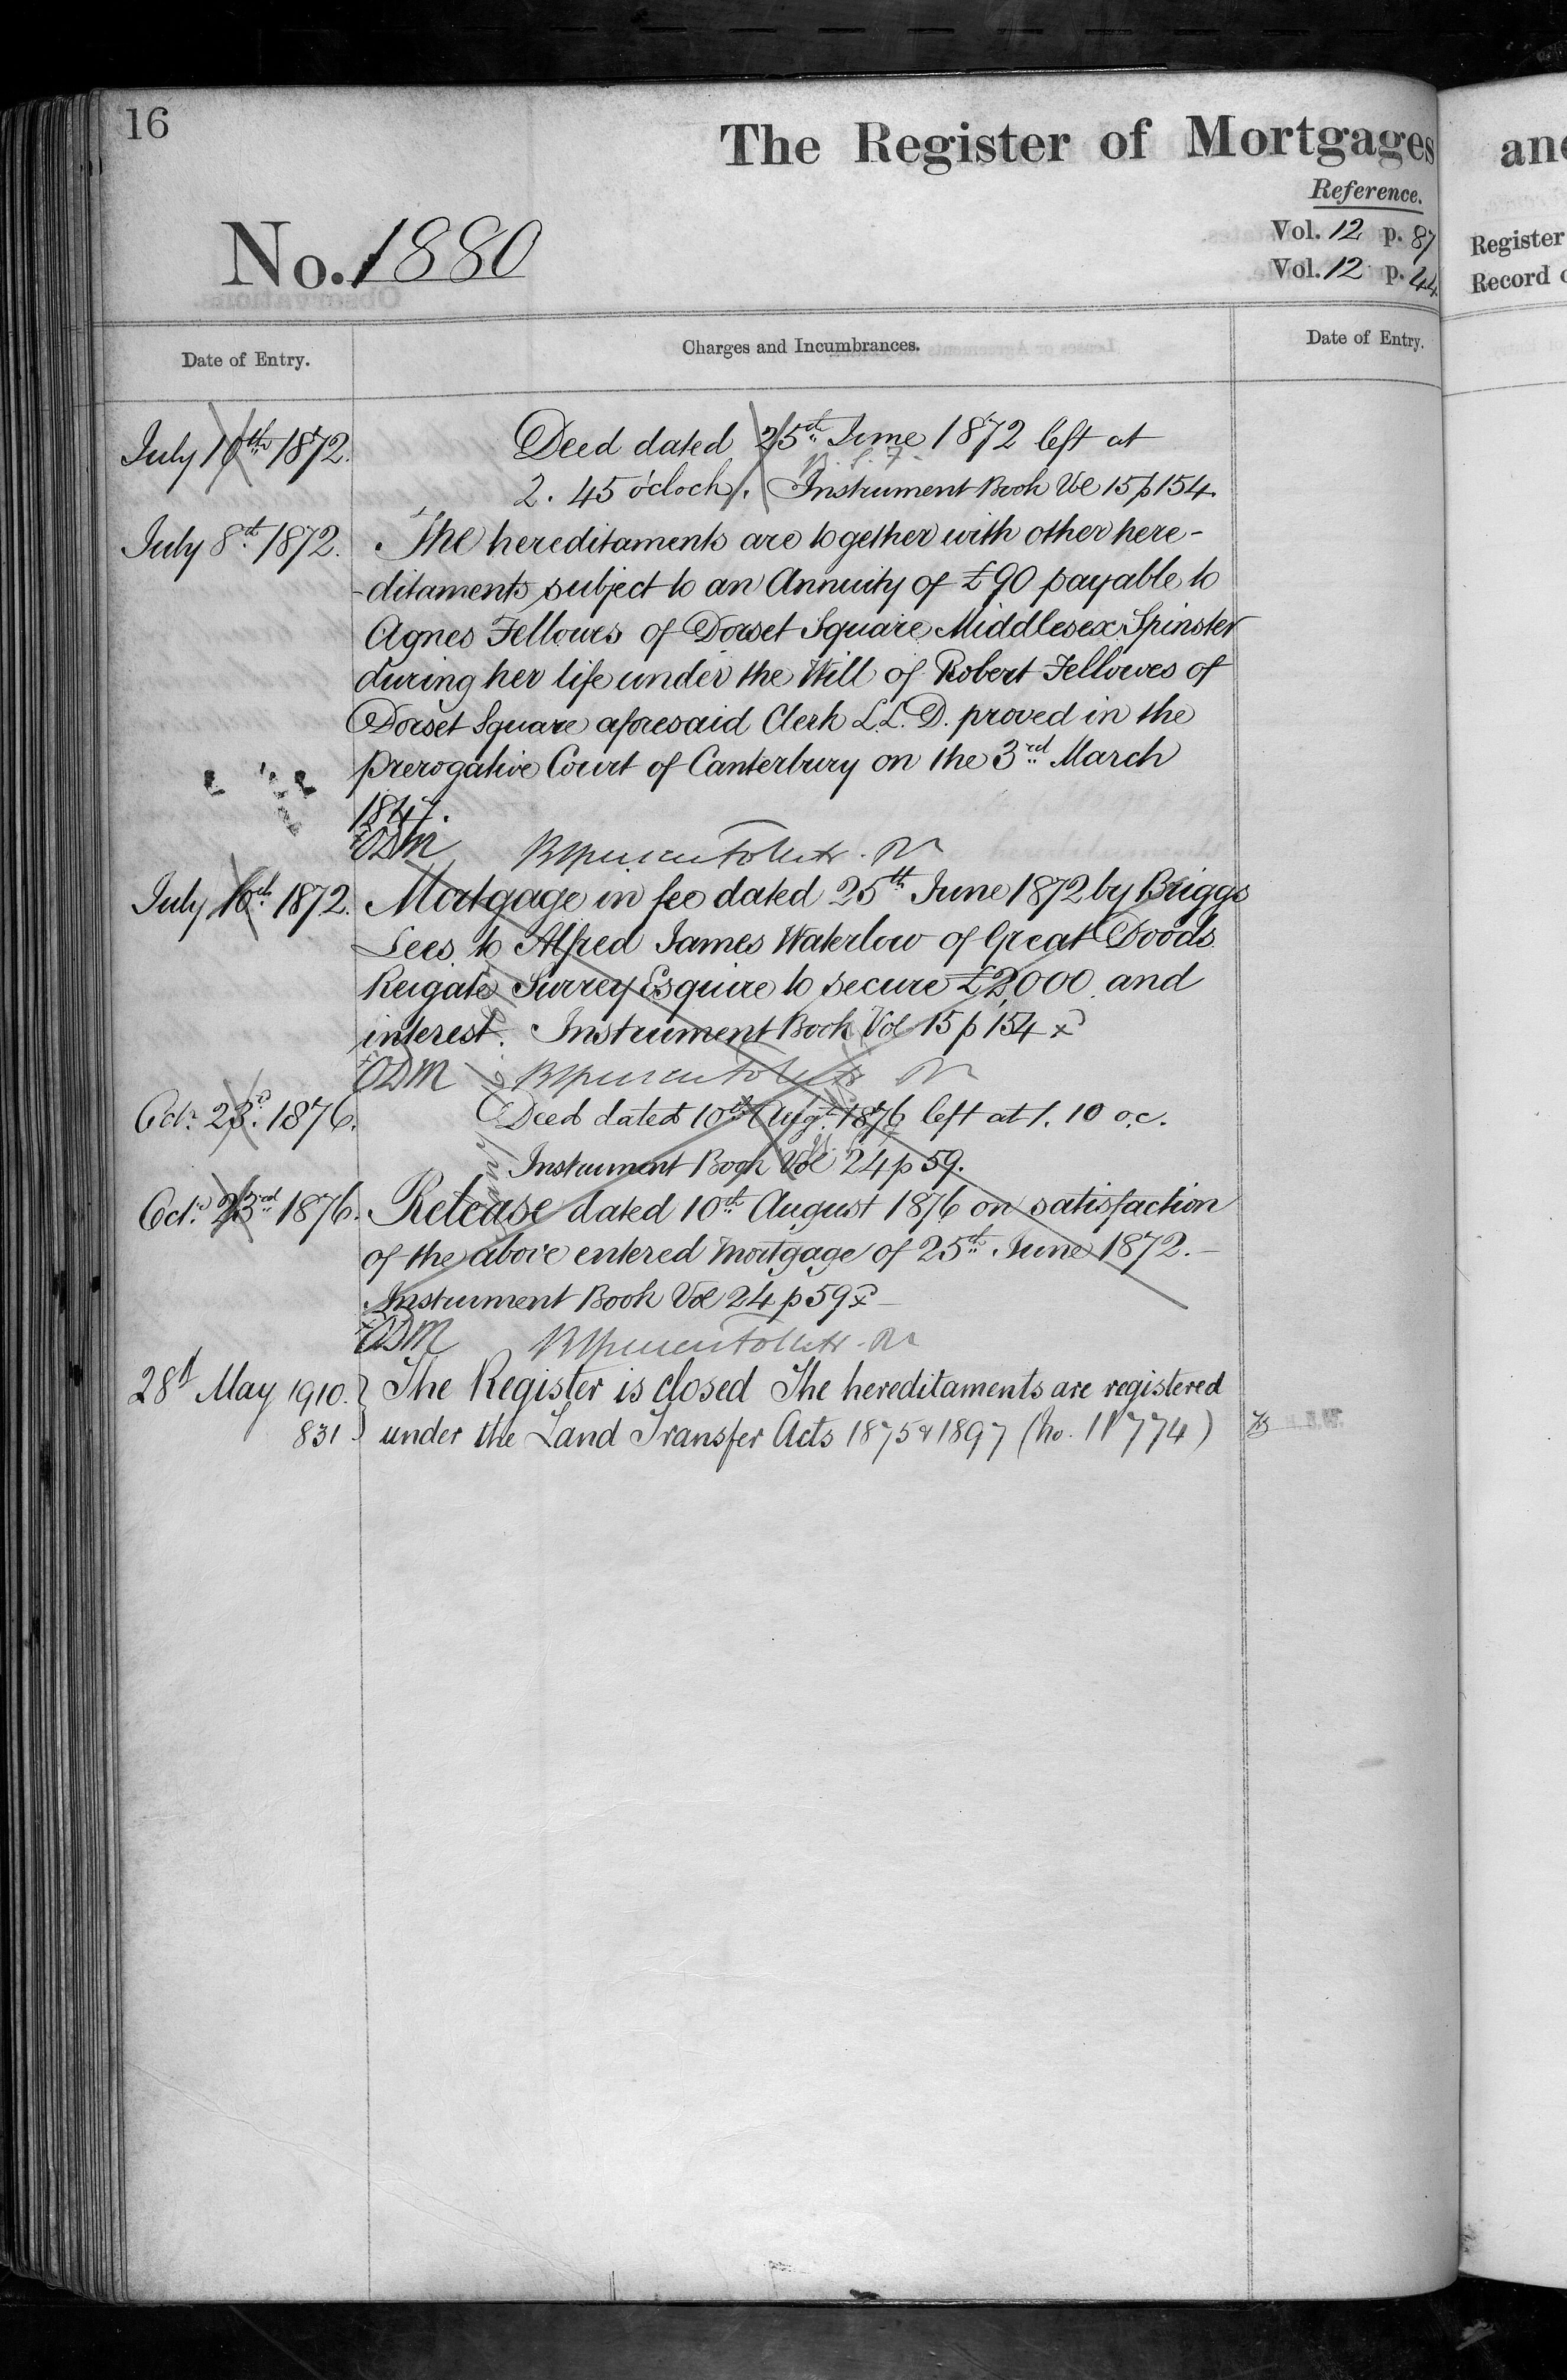 16
The Register of Mortgages
and
Reference.
No. 1880
Vol. 12 p. 87
Vol. 12 p. 44
Register
Record
Date of Entry.
Charges and Incumbrances.
Date of Entry.
July 10th 1872. Deed dated 25th June 1872 left at
2. 45 o'clock. Instrument Book Vol 15 p 154.
July 8th 1872. The hereditaments are together with other here-
-ditaments subject to an Annuity of £90 payable to
Agnes Fellowes of Dorset Square Middlesex Spinster
during her life under the Will of Robert Fellowes of
Dorset Square aforesaid Clerk L.L.D. proved in the
Prerogative Court of Canterbury on the 3rd March
1847.
ODM
July 16th 1872. Mortgage in fee dated 25th June 1872 by Briggs
Lees to Alfred James Waterlow of Great Doods
Reigate Surrey Esquire to secure £2000 and
interest. Instrument Book Vol 15 p 154 x
ODM
Octr. 23d. 1876. Deed dated 10th Augt. 1876 left at 1. 10 o.c.
Instrument Book Vol 24 p 59.
Octr. 23rd 1876. Release dated 10th August 1876 on satisfaction
of the above entered Mortgage of 25th June 1872.—
Instrument Book Vol 24 p 59 x —
ODM
28th May 1910. } The Register is closed The hereditaments are registered
831 } under the Land Transfer Acts 1875 & 1897 (No. 11774)